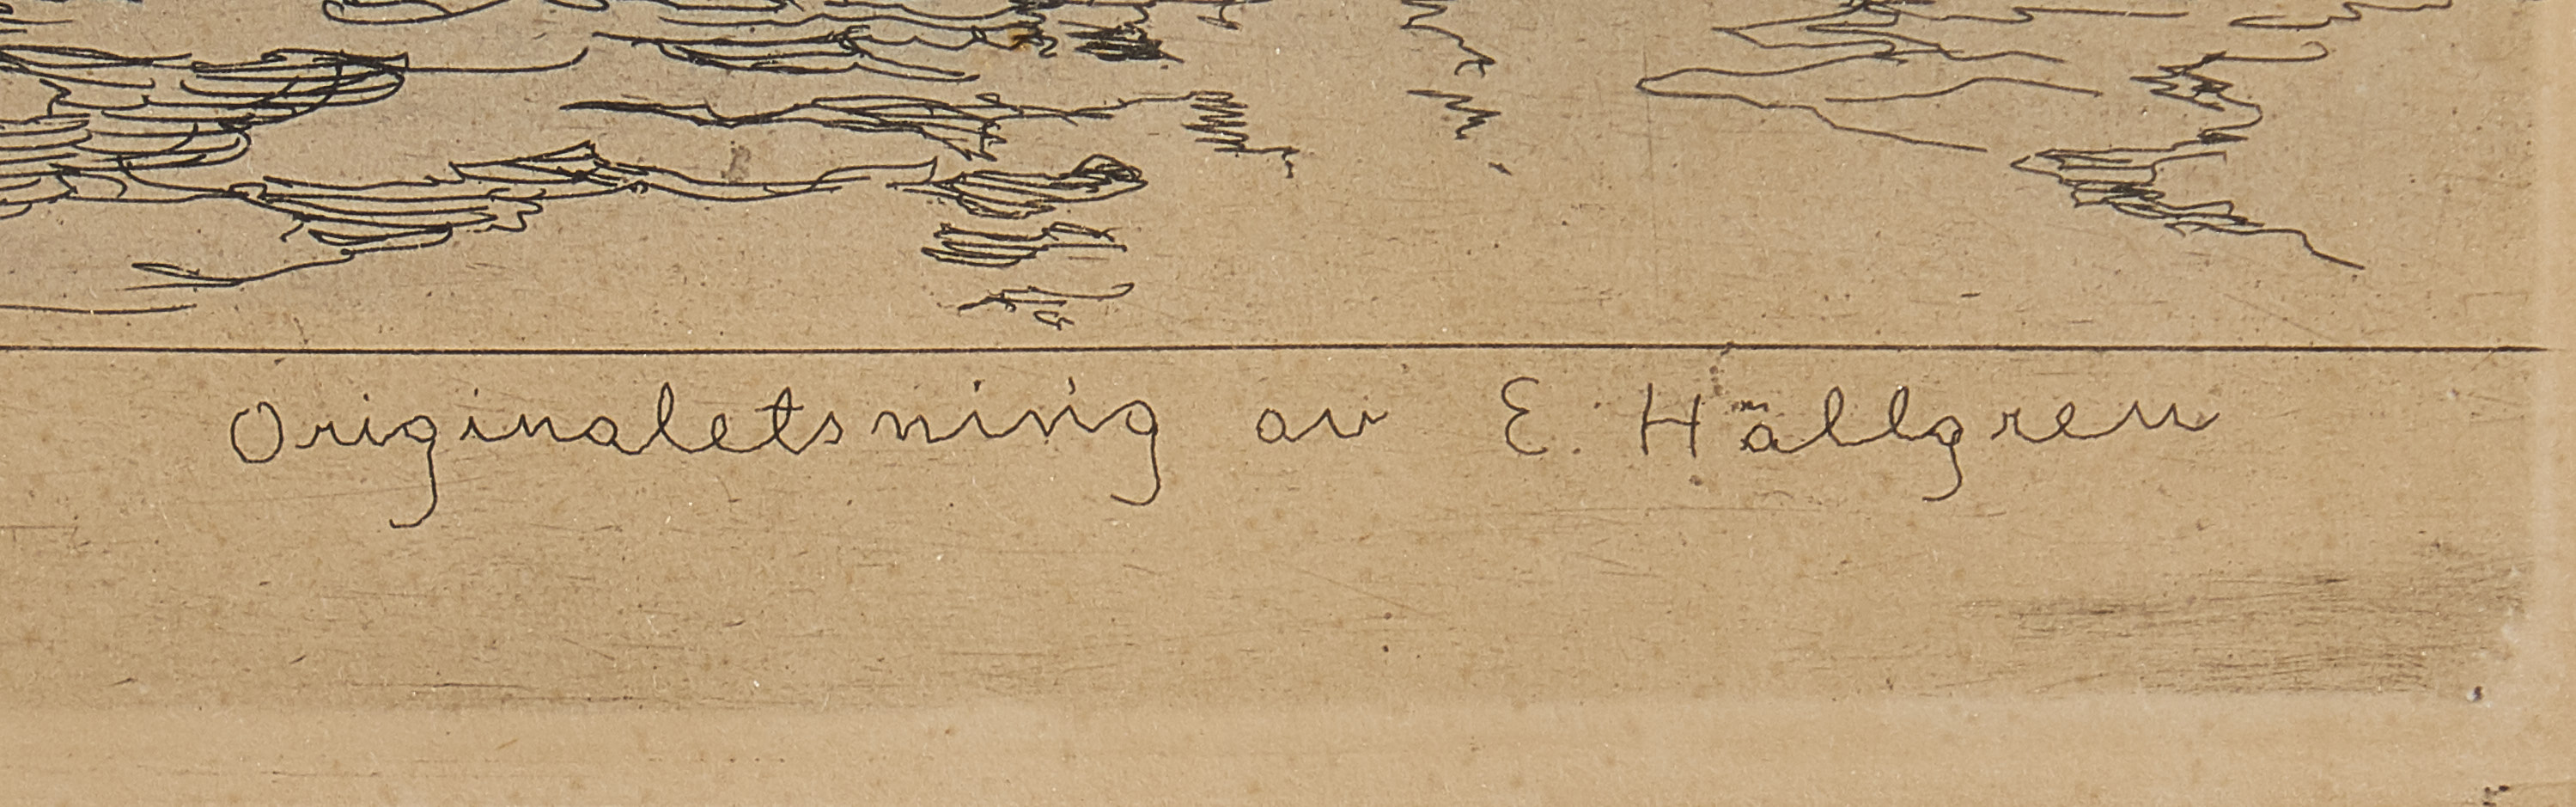 Originaletsning av E. Hällgren